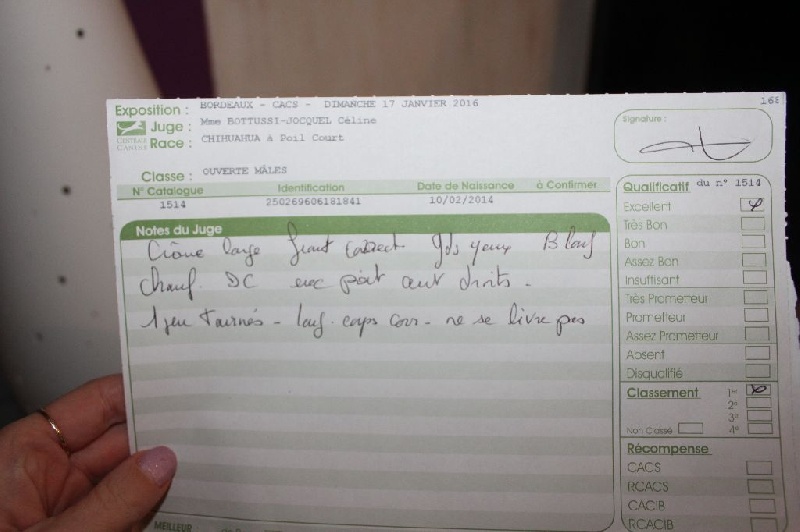 168
Exposition : BORDEAUX - CACS - DIMANCHE 17 JANVIER 2016
Juge : Mme BOTTUSSI-JOCQUEL Céline
CENTRALE CANINE
Race : CHIHUAHUA à Poil Court
Signature :
Classe : OUVERTE MÂLES
N° Catalogue Identification Date de Naissance à Confirmer
1514 250269606181841 10/02/2014
Notes du Juge
Crâne large front correct Gds yeux B long
chanf. DC avec point ant droits -
1 peu tournés - long. corps corr - ne se livre pas
Qualificatif du n° 1514
Excellent
Très Bon
Bon
Assez Bon
Insuffisant
Très Prometteur
Prometteur
Assez Prometteur
Absent
Disqualifié
Classement 1er
2e
3e
Non Classé 4e
Récompense
CACS
RCACS
CACIB
RCACIB
MEILLEUR